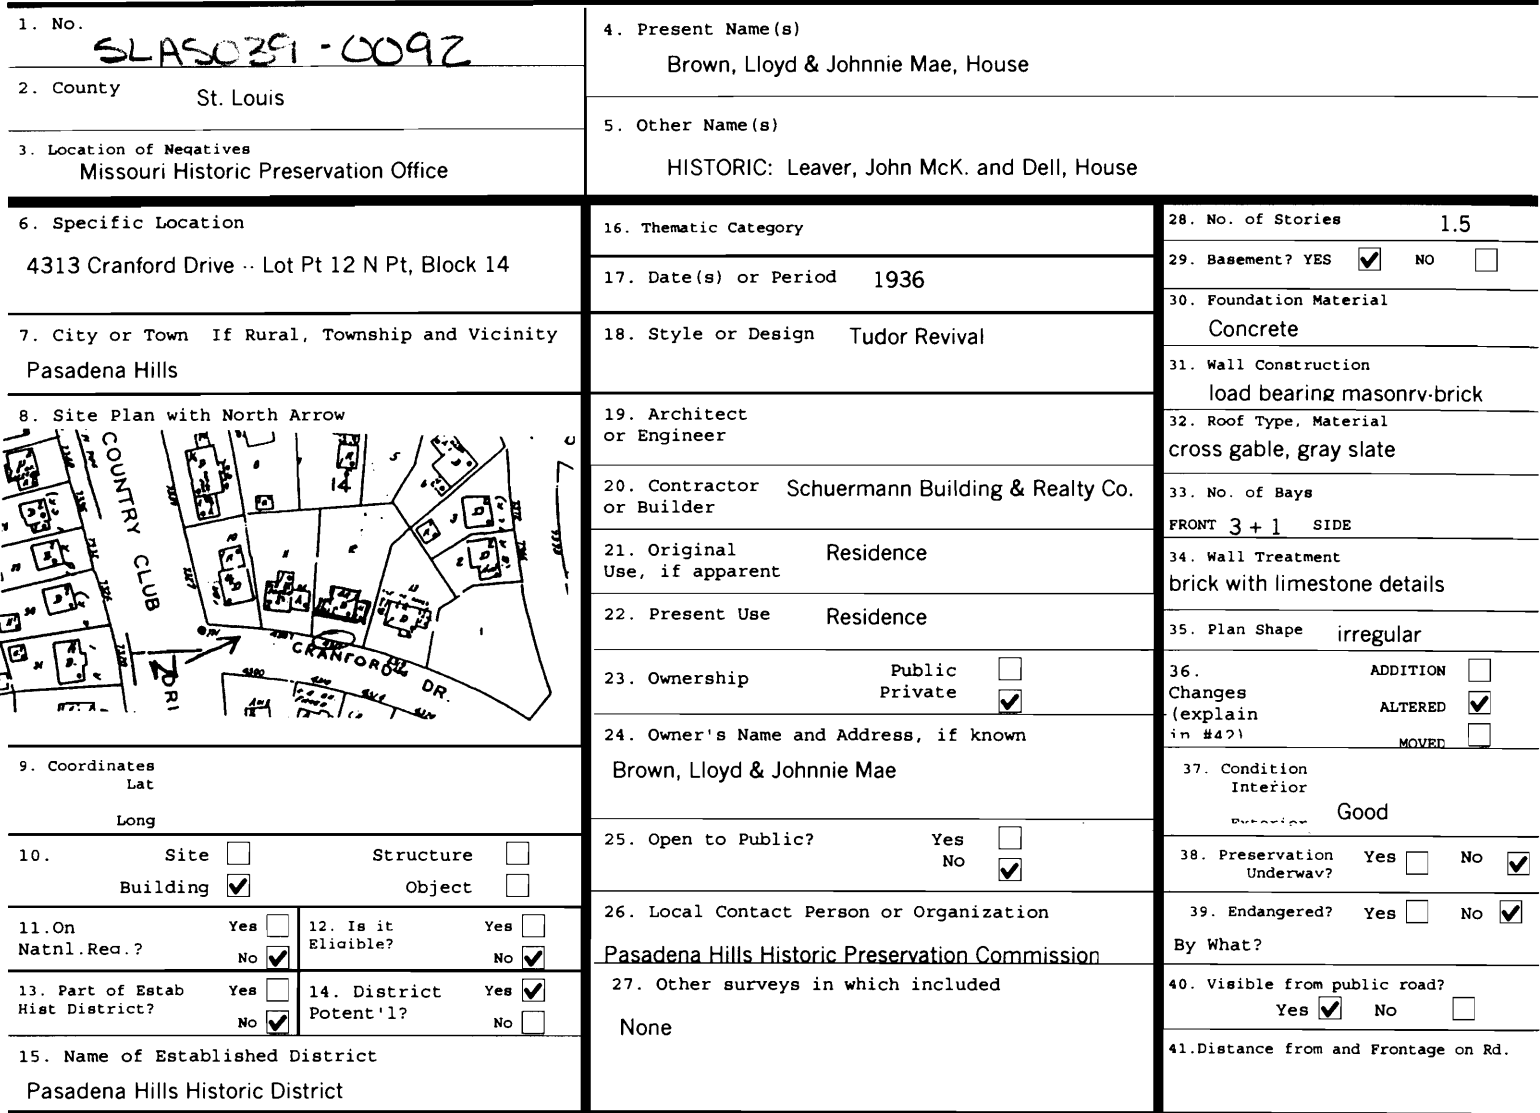 1. No.
SLAS039-0092
2. County
St. Louis
3. Location of Negatives
Missouri Historic Preservation Office
4. Present Name(s)
Brown, Lloyd & Johnnie Mae, House
5. Other Name(s)
HISTORIC: Leaver, John McK. and Dell, House
6. Specific Location
4313 Cranford Drive -- Lot Pt 12 N Pt, Block 14
7. City or Town If Rural, Township and Vicinity
Pasadena Hills
8. Site Plan with North Arrow
COUNTRY CLUB
14
CRANFORD DR.
9. Coordinates
Lat
Long
10. Site Structure
Building Object
11.On Yes
Natnl.Reg.? No
12. Is it Yes
Eligible? No
13. Part of Estab Yes
Hist District? No
14. District Yes
Potent'l? No
15. Name of Established District
Pasadena Hills Historic District
16. Thematic Category
17. Date(s) or Period 1936
18. Style or Design Tudor Revival
19. Architect
or Engineer
20. Contractor Schuermann Building & Realty Co.
or Builder
21. Original Residence
Use, if apparent
22. Present Use Residence
23. Ownership Public
Private
24. Owner's Name and Address, if known
Brown, Lloyd & Johnnie Mae
25. Open to Public? Yes
No
26. Local Contact Person or Organization
Pasadena Hills Historic Preservation Commission
27. Other surveys in which included
None
28. No. of Stories 1.5
29. Basement? YES NO
30. Foundation Material
Concrete
31. Wall Construction
load bearing masonry-brick
32. Roof Type, Material
cross gable, gray slate
33. No. of Bays
FRONT 3 + 1 SIDE
34. Wall Treatment
brick with limestone details
35. Plan Shape irregular
36. ADDITION
Changes
(explain ALTERED
in #42) MOVED
37. Condition
Interior
Exterior Good
38. Preservation Yes No
Underway?
39. Endangered? Yes No
By What?
40. Visible from public road?
Yes No
41.Distance from and Frontage on Rd.